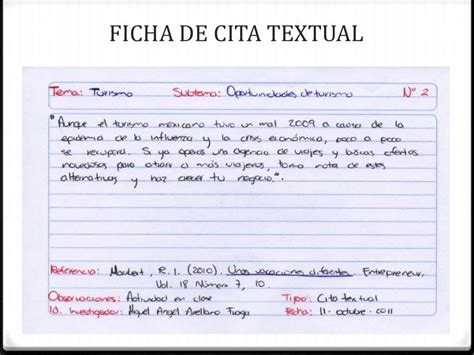 FICHA DE CITA TEXTUAL
Tema: Turismo Subtema: Oportunidades de turismo Nº 2
"Aunque el turismo mexicano tuvo un mal 2009 a causa de la
epidemia de la influenza y la crisis económica, poco a poco
se recupera. Si ya operas una agencia de viajes y buscas ofertas
novedosas para atraer a más viajeros, toma nota de estas
alternativas y haz crecer tu negocio".
Referencia: Maubert, R. I. (2010). Unas vacaciones diferentes. Entrepreneur,
Vol. 18 Número 7, 10.
Observaciones: Actividad en clase Tipo: Cita textual
Id. Investigador: Miguel Angel Avellano Fecha: 11 - octubre - 2011